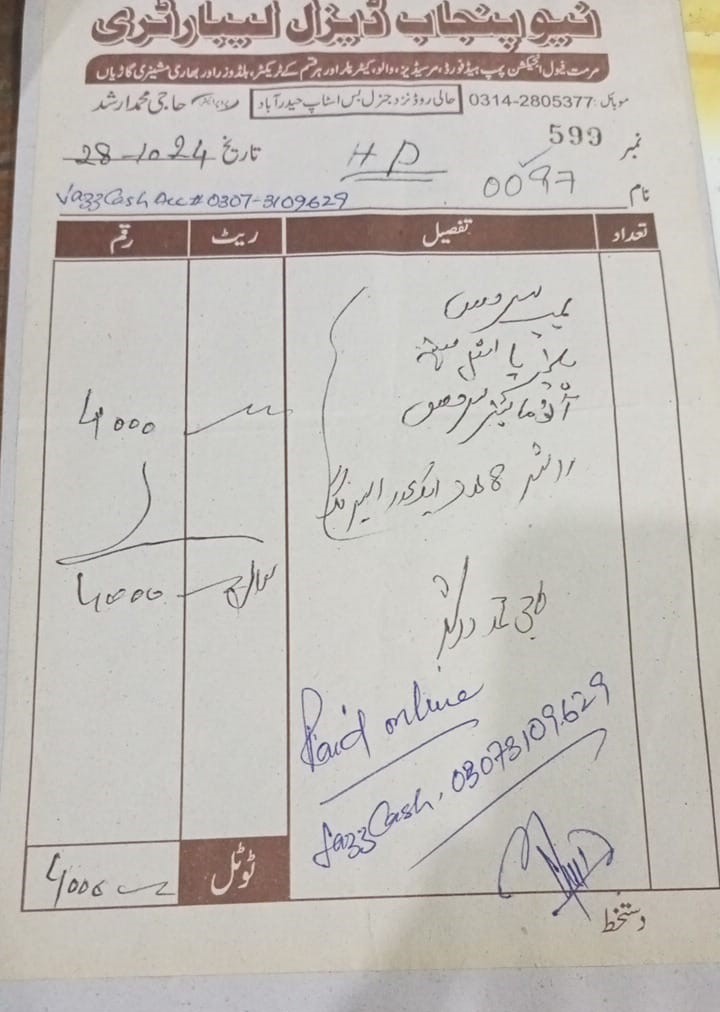 نیو پنجاب ڈیزل لیبارٹری
مرمت فیول انجیکشن پمپ ہیڈ فورڈ، مرسڈیز، والو، کیٹر پلر اور ہر قسم کے ٹریکٹر، بلڈوزر اور بھاری مشینری گاڑیاں
موبائل: 0314-2805377 ہالی روڈ نزد جنرل بس اسٹاپ حیدرآباد حاجی محمد ارشد
نمبر 599 H D تاریخ 28-10-24
نام 0097
JazzCash Acc# 0307-3109629
تعداد تفصیل ریٹ رقم
پمپ سروس
آٹومائیزر سروس 4000
8 عدد
4000
Paid online
JazzCash. 03073109629
ٹوٹل 4000
دستخط